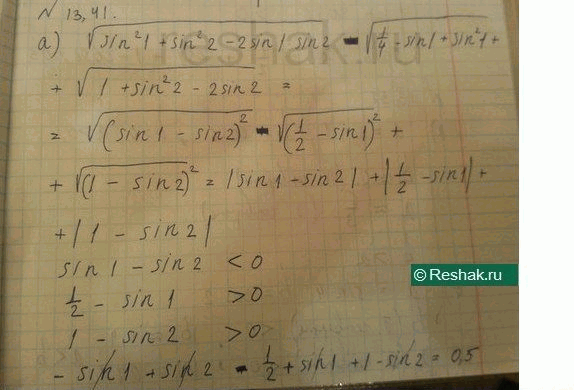 N 13,41.
а) √(sin²1 + sin²2 - 2sin1 sin2) - √(1/4 - sin1 + sin²1) +
+ √(1 + sin²2 - 2sin2) =
= √(sin1 - sin2)² - √(1/2 - sin1)² +
+ √(1 - sin2)² = |sin1 - sin2| + |1/2 - sin1| +
+ |1 - sin2|
sin1 - sin2 < 0
© Reshak.ru
1/2 - sin1 > 0
1 - sin2 > 0
- sin1 + sin2 - 1/2 + sin1 + 1 - sin2 = 0,5
reshak.ru